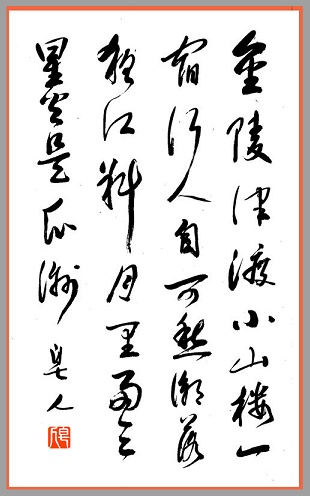 金陵津渡小山楼一
宿行人自可愁潮落
夜江斜月里两三
星火是瓜洲